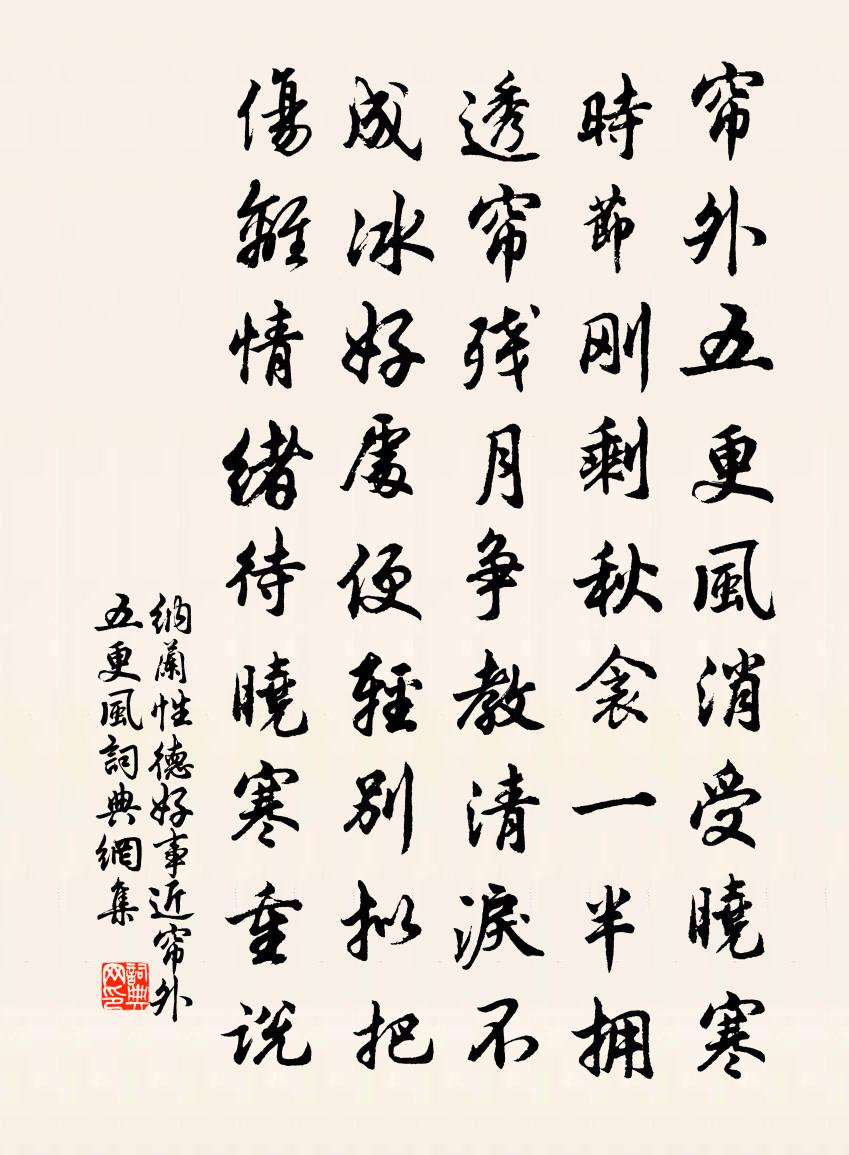 帘外五更風消受曉寒
時節刚剩秋衾一半拥
透帘残月争教清淚不
成冰好處便輕别拟把
傷離情緒待曉寒重说
納蘭性德好事近帘外
五更風詞典網集
詞典
网印